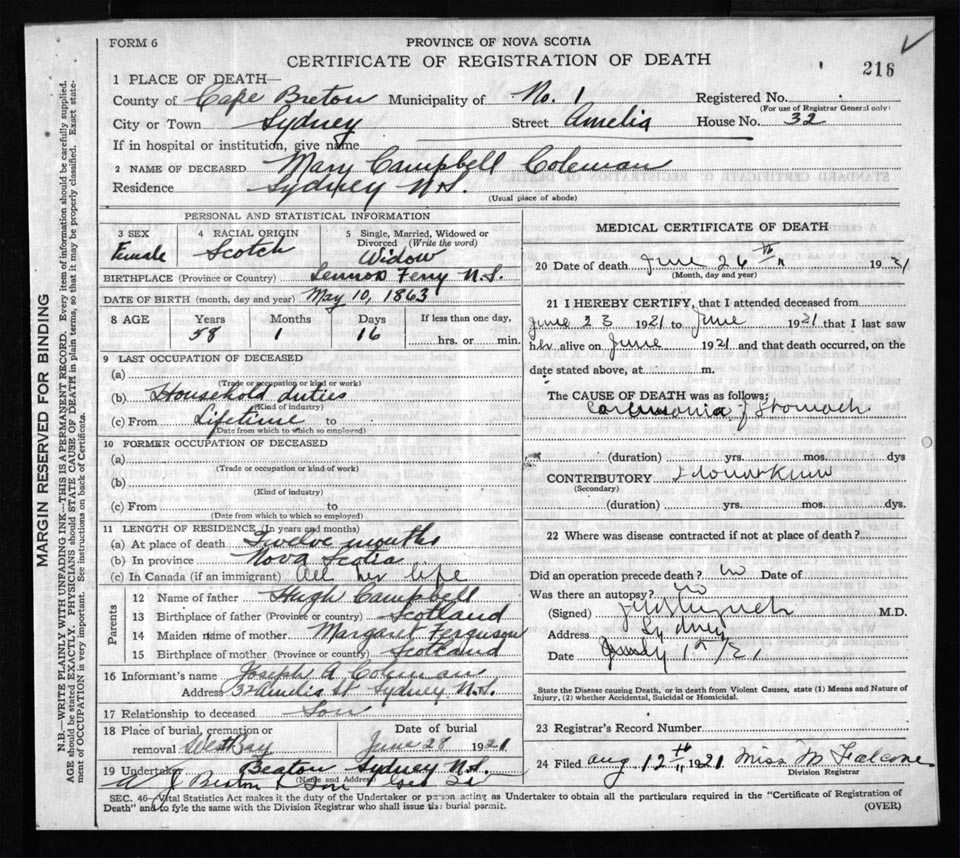 FORM 6
PROVINCE OF NOVA SCOTIA
CERTIFICATE OF REGISTRATION OF DEATH
216
1 PLACE OF DEATH—
County of Cape Breton Municipality of No. 1 Registered No.
(For use of Registrar General only)
City or Town Sydney Street Amelia House No. 32
If in hospital or institution, give name
2 NAME OF DECEASED Mary Campbell Coleman
Residence Sydney N.S.
(Usual place of abode)
PERSONAL AND STATISTICAL INFORMATION
3 SEX Female
4 RACIAL ORIGIN Scotch
5 Single, Married, Widowed or Divorced (Write the word) Widow
BIRTHPLACE (Province or Country) Lennox Ferry N.S.
DATE OF BIRTH (month, day and year) May 10, 1863
8 AGE Years Months Days If less than one day,
58 1 16 hrs. or min.
9 LAST OCCUPATION OF DECEASED
(a)
(Trade or occupation or kind of work)
(b) Household duties
(Kind of industry)
(c) From Lifetime to
(Date from which to which so employed)
10 FORMER OCCUPATION OF DECEASED
(a)
(Trade or occupation or kind of work)
(b)
(Kind of industry)
(c) From to
(Date from which to which so employed)
11 LENGTH OF RESIDENCE (In years and months)
(a) At place of death Twelve months
(b) In province Nova Scotia
(c) In Canada (if an immigrant) All her life
Parents
12 Name of father Hugh Campbell
13 Birthplace of father (Province or country) Scotland
14 Maiden name of mother Margaret Ferguson
15 Birthplace of mother (Province or country) Scotland
16 Informant's name Joseph A. Coleman
Address 32 Amelia St Sydney N.S.
17 Relationship to deceased Son
18 Place of burial, cremation or removal West Bay
Date of burial June 28 1921
19 Undertaker Beaton Sydney N.S.
(Name and Address)
A J Beaton & Son
MEDICAL CERTIFICATE OF DEATH
20 Date of death June 26th 1921
(Month, day and year)
21 I HEREBY CERTIFY, that I attended deceased from
June 23 1921 to June 1921 that I last saw
her alive on June 1921 and that death occurred, on the
date stated above, at m.
The CAUSE OF DEATH was as follows:
of Stomach
(duration) yrs. mos. dys
CONTRIBUTORY
(Secondary)
(duration) yrs. mos. dys.
22 Where was disease contracted if not at place of death?
Did an operation precede death? no Date of
Was there an autopsy? no
(Signed) M.D.
Address Sydney
Date July 1st/21
State the Disease causing Death, or in death from Violent Causes, state (1) Means and Nature of
Injury, (2) whether Accidental, Suicidal or Homicidal.
23 Registrar's Record Number
24 Filed Aug 12th 1921 Miss M
Division Registrar
SEC. 46—Vital Statistics Act makes it the duty of the Undertaker or person acting as Undertaker to obtain all the particulars required in the "Certificate of Registration of
Death" and to file the same with the Division Registrar who shall issue the burial permit.
(OVER)
MARGIN RESERVED FOR BINDING
N.B.—WRITE PLAINLY WITH UNFADING INK—THIS IS A PERMANENT RECORD. Every item of information should be carefully supplied.
AGE should be stated EXACTLY. PHYSICIANS should STATE CAUSE OF DEATH in plain terms, so that it may be properly classified. Exact state-
ment of OCCUPATION is very important. See instructions on back of Certificate.